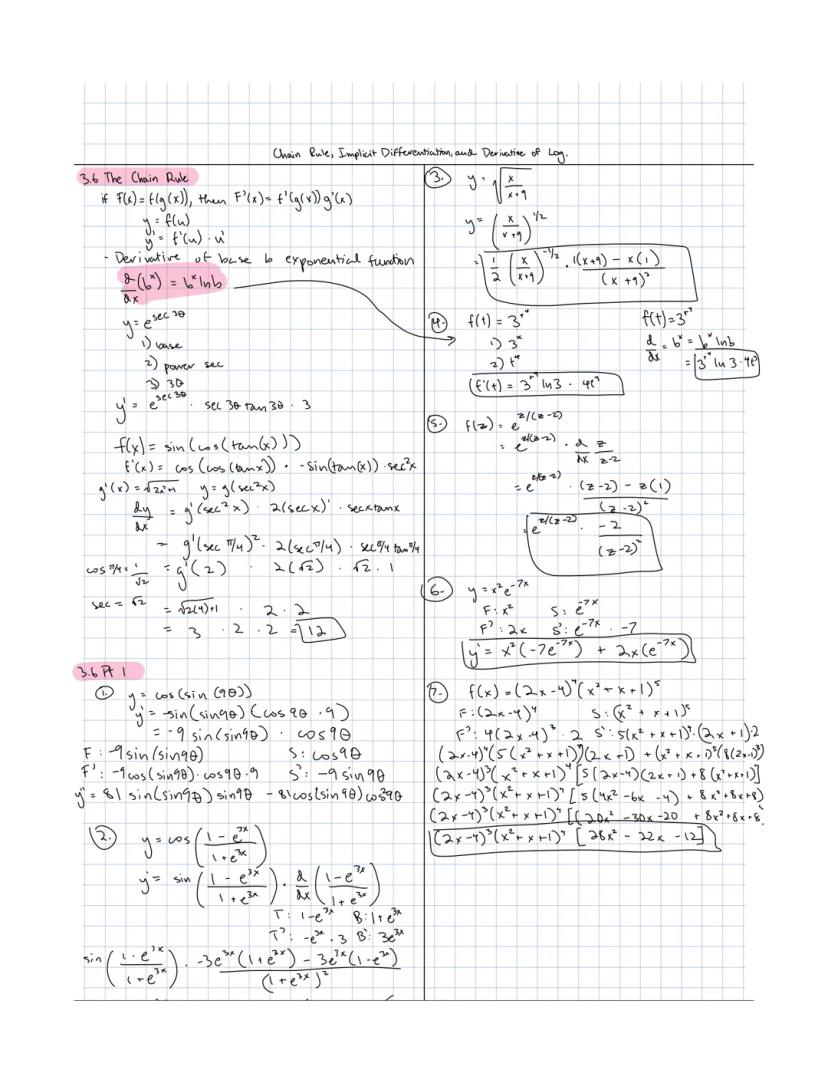 Chain Rule, Implicit Differentiation, and Derivative of Log.
3.6 The Chain Rule
if F(x) = f(g(x)), then F'(x) = f'(g(x)) g'(x)
y = f(u)
y' = f'(u) · u'
- Derivative of base b exponential function
d/dx (b^x) = b^x ln b
y = e^(sec 3θ)
1) base
2) power sec
3) 3θ
y' = e^(sec 3θ) · sec 3θ tan 3θ · 3
f(x) = sin(cos(tan(x)))
f'(x) = cos(cos(tanx)) · -sin(tan(x)) · sec²x
y = g(sec²x)
dy/dx = g'(sec²x) · 2(secx)' · secxtanx
= g'(sec π/4)² · 2(sec π/4) · sec π/4 tan π/4
cos π/4 = 1/√2 = g'(2) · 2(√2) · √2 · 1
sec = √2 = √2(4)+1 · 2 · 2
= 3 · 2 · 2 = 12
3.6 Pt 1
1. y = cos(sin(9θ))
y' = -sin(sin9θ)(cos9θ · 9)
= -9 sin(sin9θ) · cos9θ
F: -9sin(sin9θ) S: cos9θ
F': -9cos(sin9θ) · cos9θ · 9 S': -9 sin9θ
y'' = 81 sin(sin9θ) sin9θ - 81cos(sin9θ)cos²9θ
2. y = cos((1 - e^3x)/(1 + e^3x))
y' = sin((1 - e^3x)/(1 + e^3x)) · d/dx((1 - e^3x)/(1 + e^3x))
T: 1-e^3x B: 1+e^3x
T': -e^3x · 3 B': 3e^3x
sin((1 - e^3x)/(1 + e^3x)) · (-3e^3x(1+e^3x) - 3e^3x(1-e^3x))/(1+e^3x)²
3. y = √(x/(x+9))
y = (x/(x+9))^1/2
= 1/2 (x/(x+9))^-1/2 · (1(x+9) - x(1))/(x+9)²
4. f(t) = 3^t⁴
1) 3^x
2) t⁴
f'(t) = 3^t⁴ ln3 · 4t³
f(t) = 3^t⁴
d/dx = b^x = b^x lnb
= 3^t⁴ ln 3 · 4t³
5. f(z) = e^(z/(z-2))
= e^(z/(z-2)) · d/dx z/(z-2)
= e^(z/(z-2)) · ((z-2) - z(1))/(z-2)²
= e^(z/(z-2)) · -2/(z-2)²
6. y = x²e^-7x
F: x² S: e^-7x
F': 2x S': e^-7x · -7
y' = x²(-7e^-7x) + 2x(e^-7x)
7. f(x) = (2x-4)⁴(x²+x+1)⁵
F: (2x-4)⁴ S: (x²+x+1)⁵
F': 4(2x-4)³ · 2 S': 5(x²+x+1)⁴ · (2x+1)·2
(2x-4)⁴(5(x²+x+1)⁴)(2x+1) + (x²+x+1)⁵(8(2x-4)³)
(2x-4)³(x²+x+1)⁴ [5(2x-4)(2x+1) + 8(x²+x+1)]
(2x-4)³(x²+x+1)⁴ [5(4x²-6x-4) + 8x²+8x+8)
(2x-4)³(x²+x+1)⁴ [(20x²-30x-20 + 8x²+8x+8
(2x-4)³(x²+x+1)⁴ [28x² - 22x - 12]